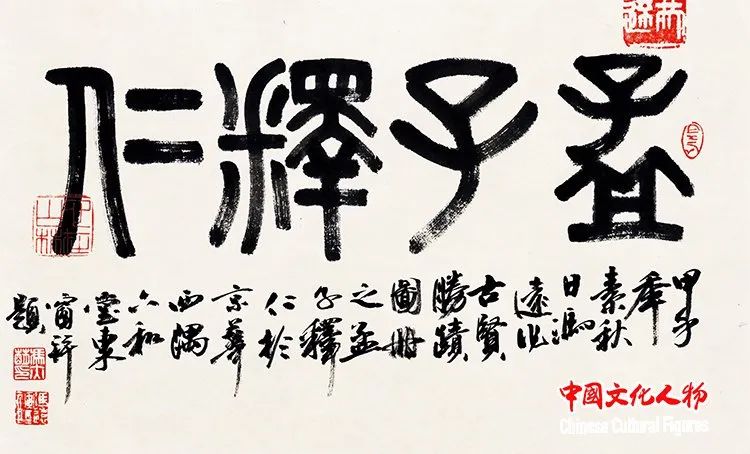 孟子釋仁
甲午
年
素秋
日馮
遠作
古賢
勝蹟
圖冊
之孟
子釋
仁於
京華
西隅
六和
堂東
窗并
題
中国文化人物
Chinese Cultural Figures